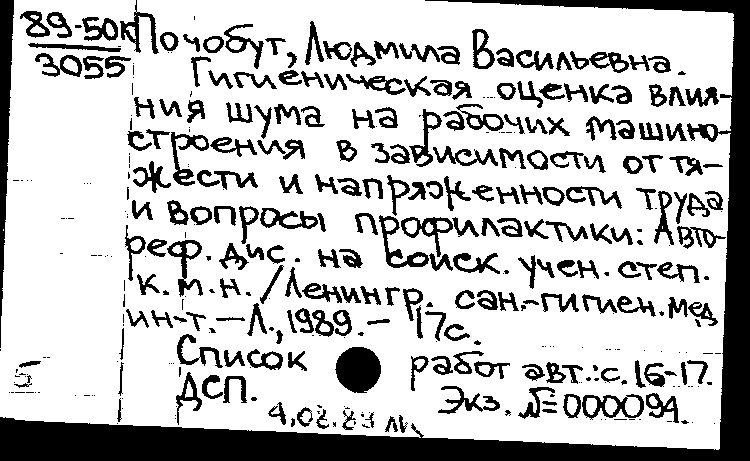 89-50К Почобут, Людмила Васильевна.
3055
Гигиеническая оценка влия-
ния шума на рабочих машино-
строения в зависимости от тя-
жести и напряженности труда
и вопросы профилактики: Авто-
реф. дис. на соиск. учен. степ.
к.м.н. / Ленингр. сан.-гигиен. мед
ин-т. — Л., 1989. — 17с.
Список работ авт.: с. 16-17.
5
ДСП. Экз. №=000094.
4.08.89